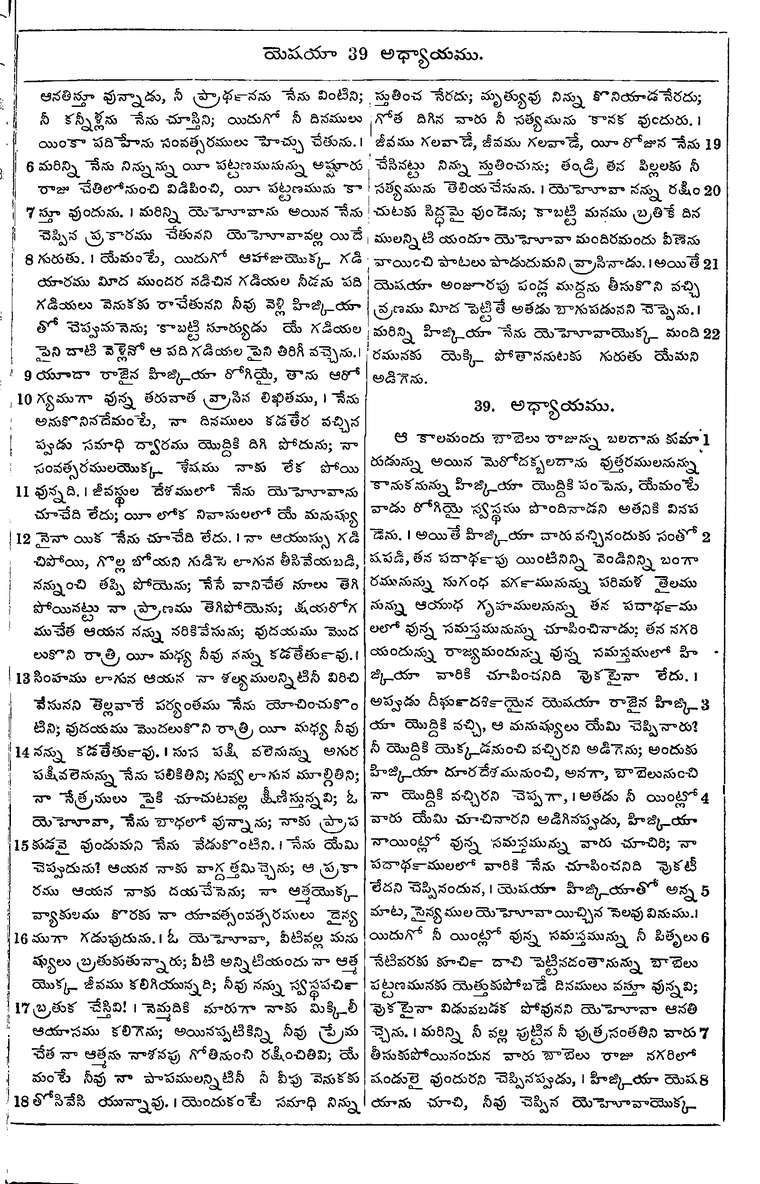 యెషయా 39 అధ్యాయము.
ఆనతిస్తూ వున్నాడు, నీ ప్రార్థనను నేను వింటిని;
నీ కన్నీళ్లను నేను చూస్తిని; యిదుగో నీ దినములు
యింకా పదిహేను సంవత్సరములు హెచ్చు చేతును. ।
6 మరిన్ని నేను నిన్నున్ను యీ పట్టణమునున్ను అష్షూరు
రాజు చేతిలోనుంచి విడిపించి, యీ పట్టణమును కా
7 స్తూ వుందును. । మరిన్ని యెహోవాను అయిన నేను
చెప్పిన ప్రకారము చేతునని యెహోవావల్ల యిదే
8 గురుతు. । యేమంటే, యిదుగో ఆహాజుయొక్క గడి
యారము మీద ముందర నడిచిన గడియల నీడను పది
గడియలు వెనుకకు రాచేతునని నీవు వెళ్లి హిజ్కియా
తో చెప్పుమనెను; కాబట్టి సూర్యుడు యే గడియల
పైని దాటి వెళ్లెనో ఆ పది గడియల పైని తిరిగీ వచ్చెను. ।
9 యూదా రాజైన హిజ్కియా రోగియై, తాను ఆరో
10 గ్యముగా వున్న తరువాత వ్రాసిన లిఖితము, । నేను
అనుకొనినదేమంటే, నా దినములు కడతేర వచ్చిన
ప్పుడు సమాధి ద్వారము యొద్దికి దిగి పోదును; నా
సంవత్సరములయొక్క శేషము నాకు లేక పోయి
11 వున్నది. । జీవస్థుల దేశములో నేను యెహోవాను
చూచేది లేదు; యీ లోక నివాసులలో యే మనుష్యు
12 నైనా యిక నేను చూచేది లేదు. । నా ఆయుస్సు గడి
చిపోయి, గొల్ల బోయని గుడిసె లాగున తీసివేయబడి,
నన్నుంచి తప్పి పోయెను; నేసే వానిచేత నూలు తెగి
పోయినట్టు నా ప్రాణము తెగిపోయెను; క్షయరోగ
ముచేత ఆయన నన్ను నరికివేసును; వుదయము మొద
లుకొని రాత్రి యీ మధ్య నీవు నన్ను కడతేతుర్‍వు. ।
13 సింహము లాగున ఆయన నా శల్యములన్నిటినీ విరిచి
వేసునని తెల్లవారే పర్యంతము నేను యోచించుకొం
టిని; వుదయము మొదలుకొని రాత్రి యీ మధ్య నీవు
14 నన్ను కడతేతుర్‍వు. । సుస పక్షి వలెనున్ను అగుర
పక్షివలెనున్ను నేను పలికితిని; గువ్వ లాగున మూల్గితిని;
నా నేత్రములు పైకి చూచుటవల్ల క్షీణిస్తున్నవి; ఓ
యెహోవా, నేను బాధలో వున్నాను; నాకు ప్రాప
15 కుడవై వుందుమని నేను వేడుకొంటిని. । నేను యేమి
చెప్పుదును? ఆయన నాకు వాగ్దత్తమిచ్చెను; ఆ ప్రకా
రము ఆయన నాకు దయచేసెను; నా ఆత్మయొక్క
వ్యాకులము కొరకు నా యావత్సంవత్సరములు దైన్య
16 ముగా గడుపుదును. । ఓ యెహోవా, వీటివల్ల మను
ష్యులు బ్రతుకుతున్నారు; వీటి అన్నిటియందు నా ఆత్మ
యొక్క జీవము కలిగియున్నది; నీవు నన్ను స్వస్థపర్చి
17 బ్రతుక చేస్తివి! । నెమ్మదికి మారుగా నాకు మిక్కిలీ
ఆయాసము కలిగెను; అయినప్పటికిన్ని నీవు ప్రేమ
చేత నా ఆత్మను నాశనపు గోతినుంచి రక్షించితివి; యే
మంటే నీవు నా పాపములన్నిటినీ నీ వీపు వెనుకకు
18 తోసివేసి యున్నావు. । యెందుకంటే సమాధి నిన్ను
స్తుతించ నేరదు; మృత్యువు నిన్ను కొనియాడ నేరదు;
గోత దిగిన వారు నీ సత్యమును కానక వుందురు. ।
జీవము గలవాడే, జీవము గలవాడే, యీ రోజున నేను 19
చేసినట్టు నిన్ను స్తుతించును; తండ్రి తన పిల్లలకు నీ
సత్యమును తెలియచేసును. । యెహోవా నన్ను రక్షిం 20
చుటకు సిద్ధమై వుండెను; కాబట్టి మనము బ్రతికే దిన
ములన్నిటి యందూ యెహోవా మందిరమందు వీణెను
వాయించి పాటలు పాడుదుమని వ్రాసినాడు. । అయితే 21
యెషయా అంజూరపు పండ్ల ముద్దను తీసుకొని వచ్చి
వ్రణము మీద పెట్టితే అతడు బాగుపడునని చెప్పెను. ।
మరిన్ని హిజ్కియా నేను యెహోవాయొక్క మంది 22
రమునకు యెక్కి పోతాననుటకు గురుతు యేమని
అడిగెను.
39. అధ్యాయము.
ఆ కాలమందు బాబెలు రాజున్ను బలదాను కుమా 1
రుడున్ను అయిన మెరోదక్బలదాను వుత్తరములనున్ను
కానుకనున్ను హిజ్కియా యొద్దికి పంపెను, యేమంటే
వాడు రోగియై స్వస్థము పొందినాడని అతనికి వినప
డెను. । అయితే హిజ్కియా వారు వచ్చినందుకు సంతో 2
షపడి, తన పదార్థపు యింటినిన్ని వెండినిన్ని బంగా
రమునున్ను సుగంధ వర్గమునున్ను పరిమళ తైలము
నున్ను ఆయుధ గృహములనున్ను తన పదార్థము
లలో వున్న సమస్తమునున్ను చూపించినాడు; తన నగరి
యందున్ను రాజ్యమందున్ను వున్న సమస్తములో హి
జ్కియా వారికి చూపించనిది వొకటైనా లేదు. ।
అప్పుడు దీర్ఘదర్శియైన యెషయా రాజైన హిజ్కి 3
యా యొద్దికి వచ్చి, ఆ మనుష్యులు యేమి చెప్పినారు?
నీ యొద్దికి యెక్కడనుంచి వచ్చిరని అడిగెను; అందుకు
హిజ్కియా దూరదేశమునుంచి, అనగా, బాబెలునుంచి
నా యొద్దికి వచ్చిరని చెప్పగా, । అతడు నీ యింట్లో 4
వారు యేమి చూచినారని అడిగినప్పుడు, హిజ్కియా
నాయింట్లో వున్న సమస్తమున్ను వారు చూచిరి; నా
పదార్థములలో వారికి నేను చూపించనిది వొకటీ
లేదని చెప్పినందున, । యెషయా హిజ్కియాతో అన్న 5
మాట, సైన్యముల యెహోవా యిచ్చిన సెలవు వినుము. ।
యిదుగో నీ యింట్లో వున్న సమస్తమున్ను నీ పితృలు 6
నేటివరకు కూర్చి దాచి పెట్టినదంతానున్ను బాబెలు
పట్టణమునకు యెత్తుకుపోబడే దినములు వస్తూ వున్నవి;
వొకటైనా విడువబడక పోవునని యెహోవా ఆనతి
చ్చెను. । మరిన్ని నీ వల్ల పుట్టిన నీ పుత్రసంతతిని వారు 7
తీసుకుపోయినందున వారు బాబెలు రాజు నగరిలో
షండులై వుందురని చెప్పినప్పుడు, । హిజ్కియా యెష 8
యాను చూచి, నీవు చెప్పిన యెహోవాయొక్క